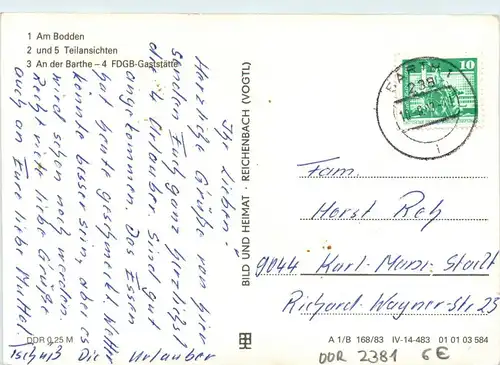 1 Am Bodden
2 und 5 Teilansichten
3 An der Barthe – 4 FDGB-Gaststätte
Ihr Lieben.
Herzliche Grüße von hier
senden Euch ganz herzlichst
die 4 Urlauber. Sind gut
angekommen. Das Essen
hat heute geschmeckt. Wetter
könnte besser sein, aber es
wird schon noch werden.
Recht viele liebe Grüße
auch an Eure liebe Mutter.
Tschüß Die Urlauber
BILD UND HEIMAT · REICHENBACH (VOGTL)
10
BARTH 1
238
Fam.
Horst Reh
9044 Karl-Marx-Stadt
Richard-Wagner-Str. 23
DDR 0,25 M
A 1/B 168/83 IV-14-483 01 01 03 584
DDR 2381 6€